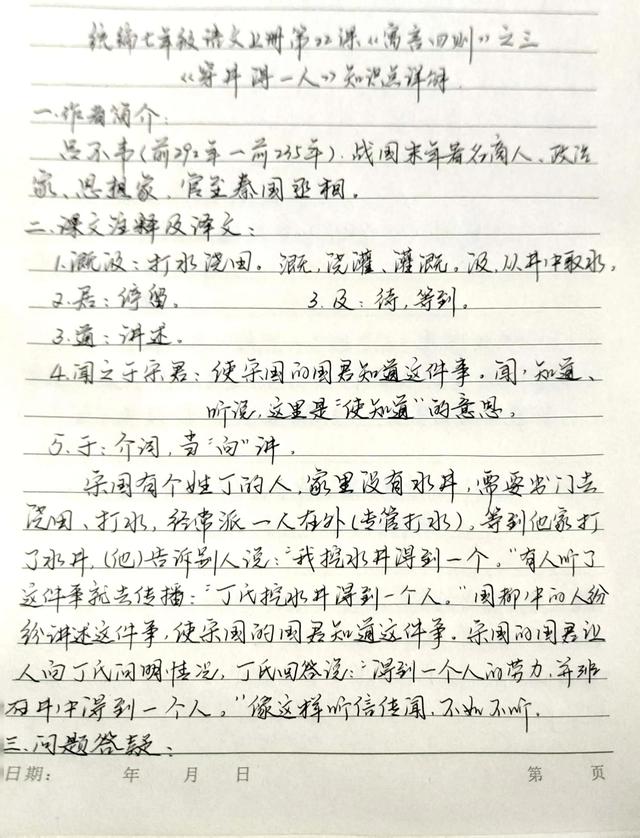 统编七年级语文上册第22课《寓言四则》之三
《穿井得一人》知识点详解.
一.作者简介:
吕不韦(前292年一前235年).战国末年著名商人、政治
家、思想家,官至秦国丞相。
二.课文注释及译文:
1.溉汲:打水浇田。溉,浇灌、灌溉。汲,从井中取水。
2.居:停留。 3.及:待,等到。
3.道:讲述。
4.闻之于宋君:使宋国的国君知道这件事。闻,知道、
听说,这里是"使知道"的意思。
5.于:介词,当"向"讲.
宋国有个姓丁的人,家里没有水井,需要出门去
浇田、打水,经常派一人在外(专管打水),等到他家打
了水井,(他)告诉别人说:"我挖水井得到一个。"有人听了
这件事就去传播:"丁氏挖水井得到一个人。"国都中的人纷
纷讲述这件事,使宋国的国君知道这件事。宋国的国君让
人向丁氏问明情况,丁氏回答说:"得到一个人的劳力,并
在井中得到一个人。"像这样听信传闻,不如不听.
三.问题答疑:
日期: 年 月 日 第 页